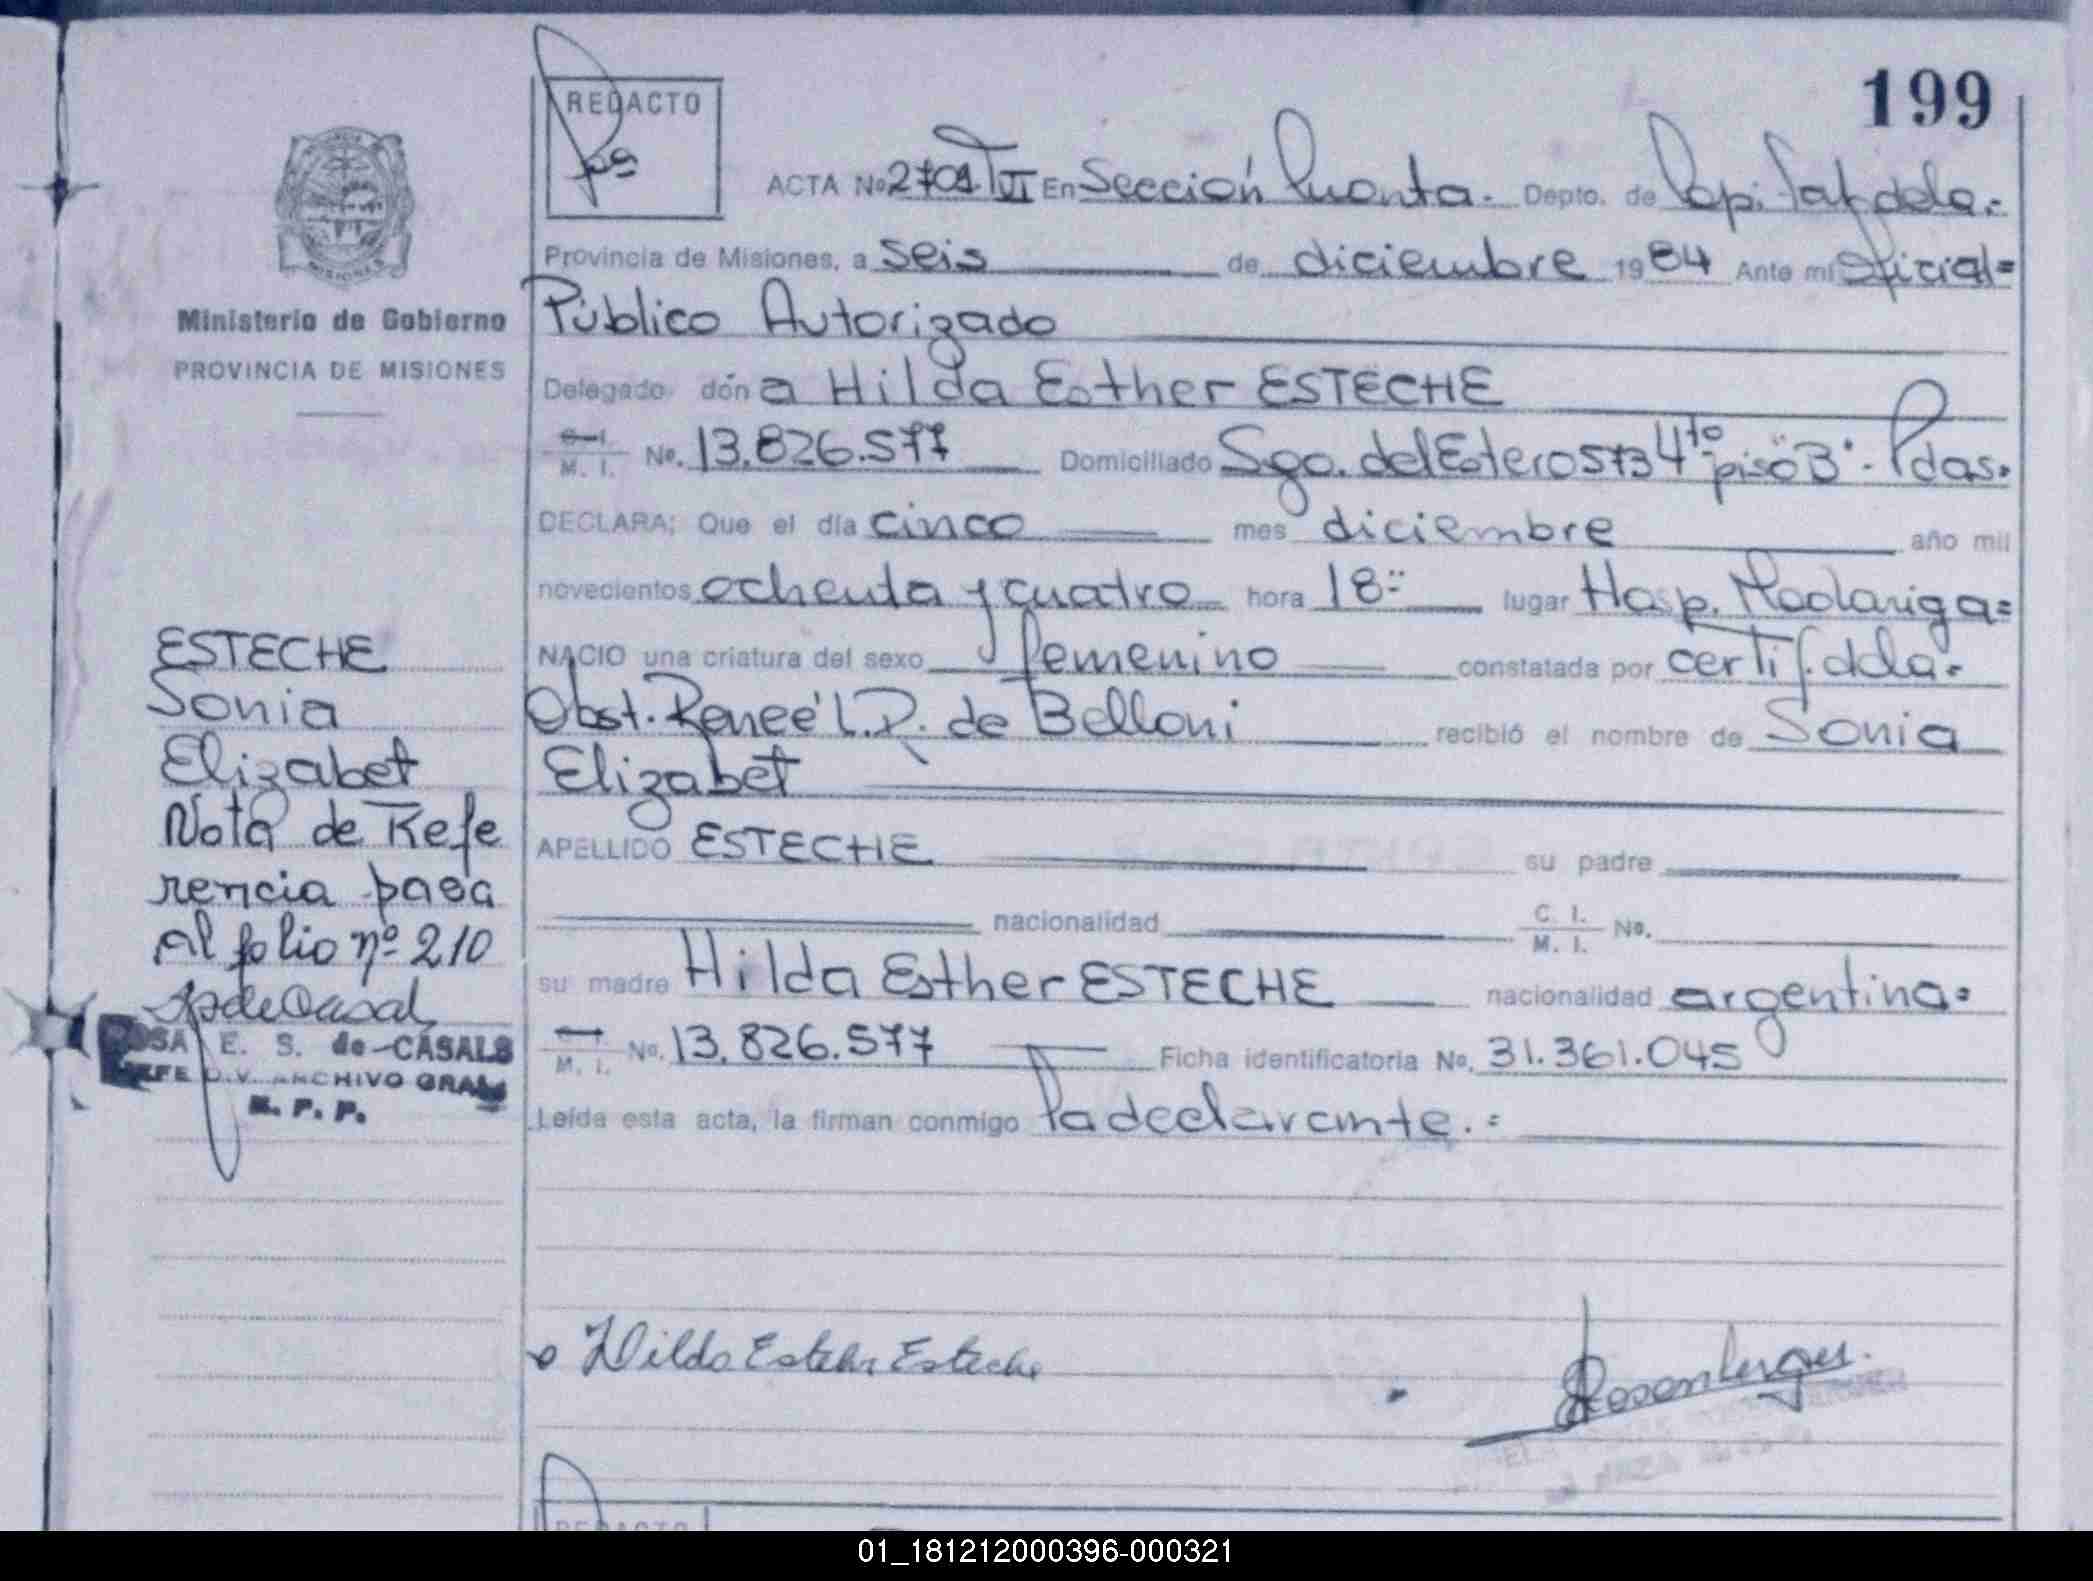 199
REDACTO
ACTA No 2701 T VI En Sección Cuarta. Depto. de Capital de la.=
Provincia de Misiones, a seis de diciembre 1984 Ante mi Oficial=
Público Autorizado
Delegado don a Hilda Esther ESTECHE
C. I. / M. I. No. 13.826.577 Domiciliado Sgo. del Estero 573 4to piso "B". Pdas.
DECLARA: Que el día cinco mes diciembre año mil
novecientos ochenta y cuatro hora 18:- lugar Hosp. Madariaga=
NACIO una criatura del sexo femenino constatada por certif. dela.
Obst. Reneé L.D. de Belloni recibió el nombre de Sonia
Elizabet
APELLIDO ESTECHE su padre
nacionalidad C. I. / M. I. No.
su madre Hilda Esther ESTECHE nacionalidad argentina=
C. I. / M. I. No. 13.826.577 Ficha identificatoria No. 31.361.045
Leída esta acta, la firman conmigo la declarante.=
Hilda Esther Esteche
MISIONES
Ministerio de Gobierno
PROVINCIA DE MISIONES
ESTECHE
Sonia
Elizabet
Nota de Refe
rencia pasa
al folio nº 210
ROSA E. S. de CASALS
JEFE DIV. ARCHIVO GRAL
R. P. P.
REDACTO
01_181212000396-000321